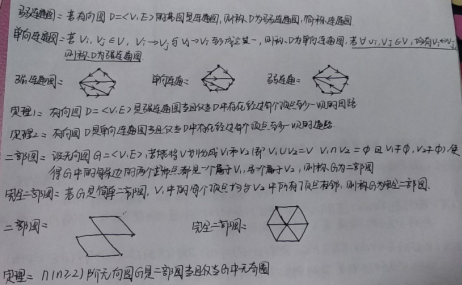 弱连通图：若有向图D=<V,E>的基图是连通图，则称D为弱连通图，简称连通图
单向连通图：若∀Vi,Vj∈V, Vi→Vj与Vj→Vi至少成立其一，则称D为单向连通图.若∀Vi,Vj∈V,均有Vi↔Vj
则称D为强连通图
强连通： 单向连通： 弱连通：
定理1：有向图D=<V,E>是强连通图当且仅当D中存在经过每个顶点至少一次的回路
定理2：有向图D是单向连通图当且仅当D中存在经过每个顶点至少一次的通路
二部图：设无向图G=<V,E>若能将V划分成V1和V2(即V1∪V2=V V1∩V2=φ且V1≠φ,V2≠φ),使
得G中的每条边的两个端点都是一个属于V1,另一个属于V2,则称G为二部图
完全二部图：若G是简单二部图，V1中的每个顶点均与V2中所有顶点相邻，则称G为完全二部图.
二部图： 完全二部图：
定理：n(n≥2)阶无向图G是二部图当且仅当G中无奇圈